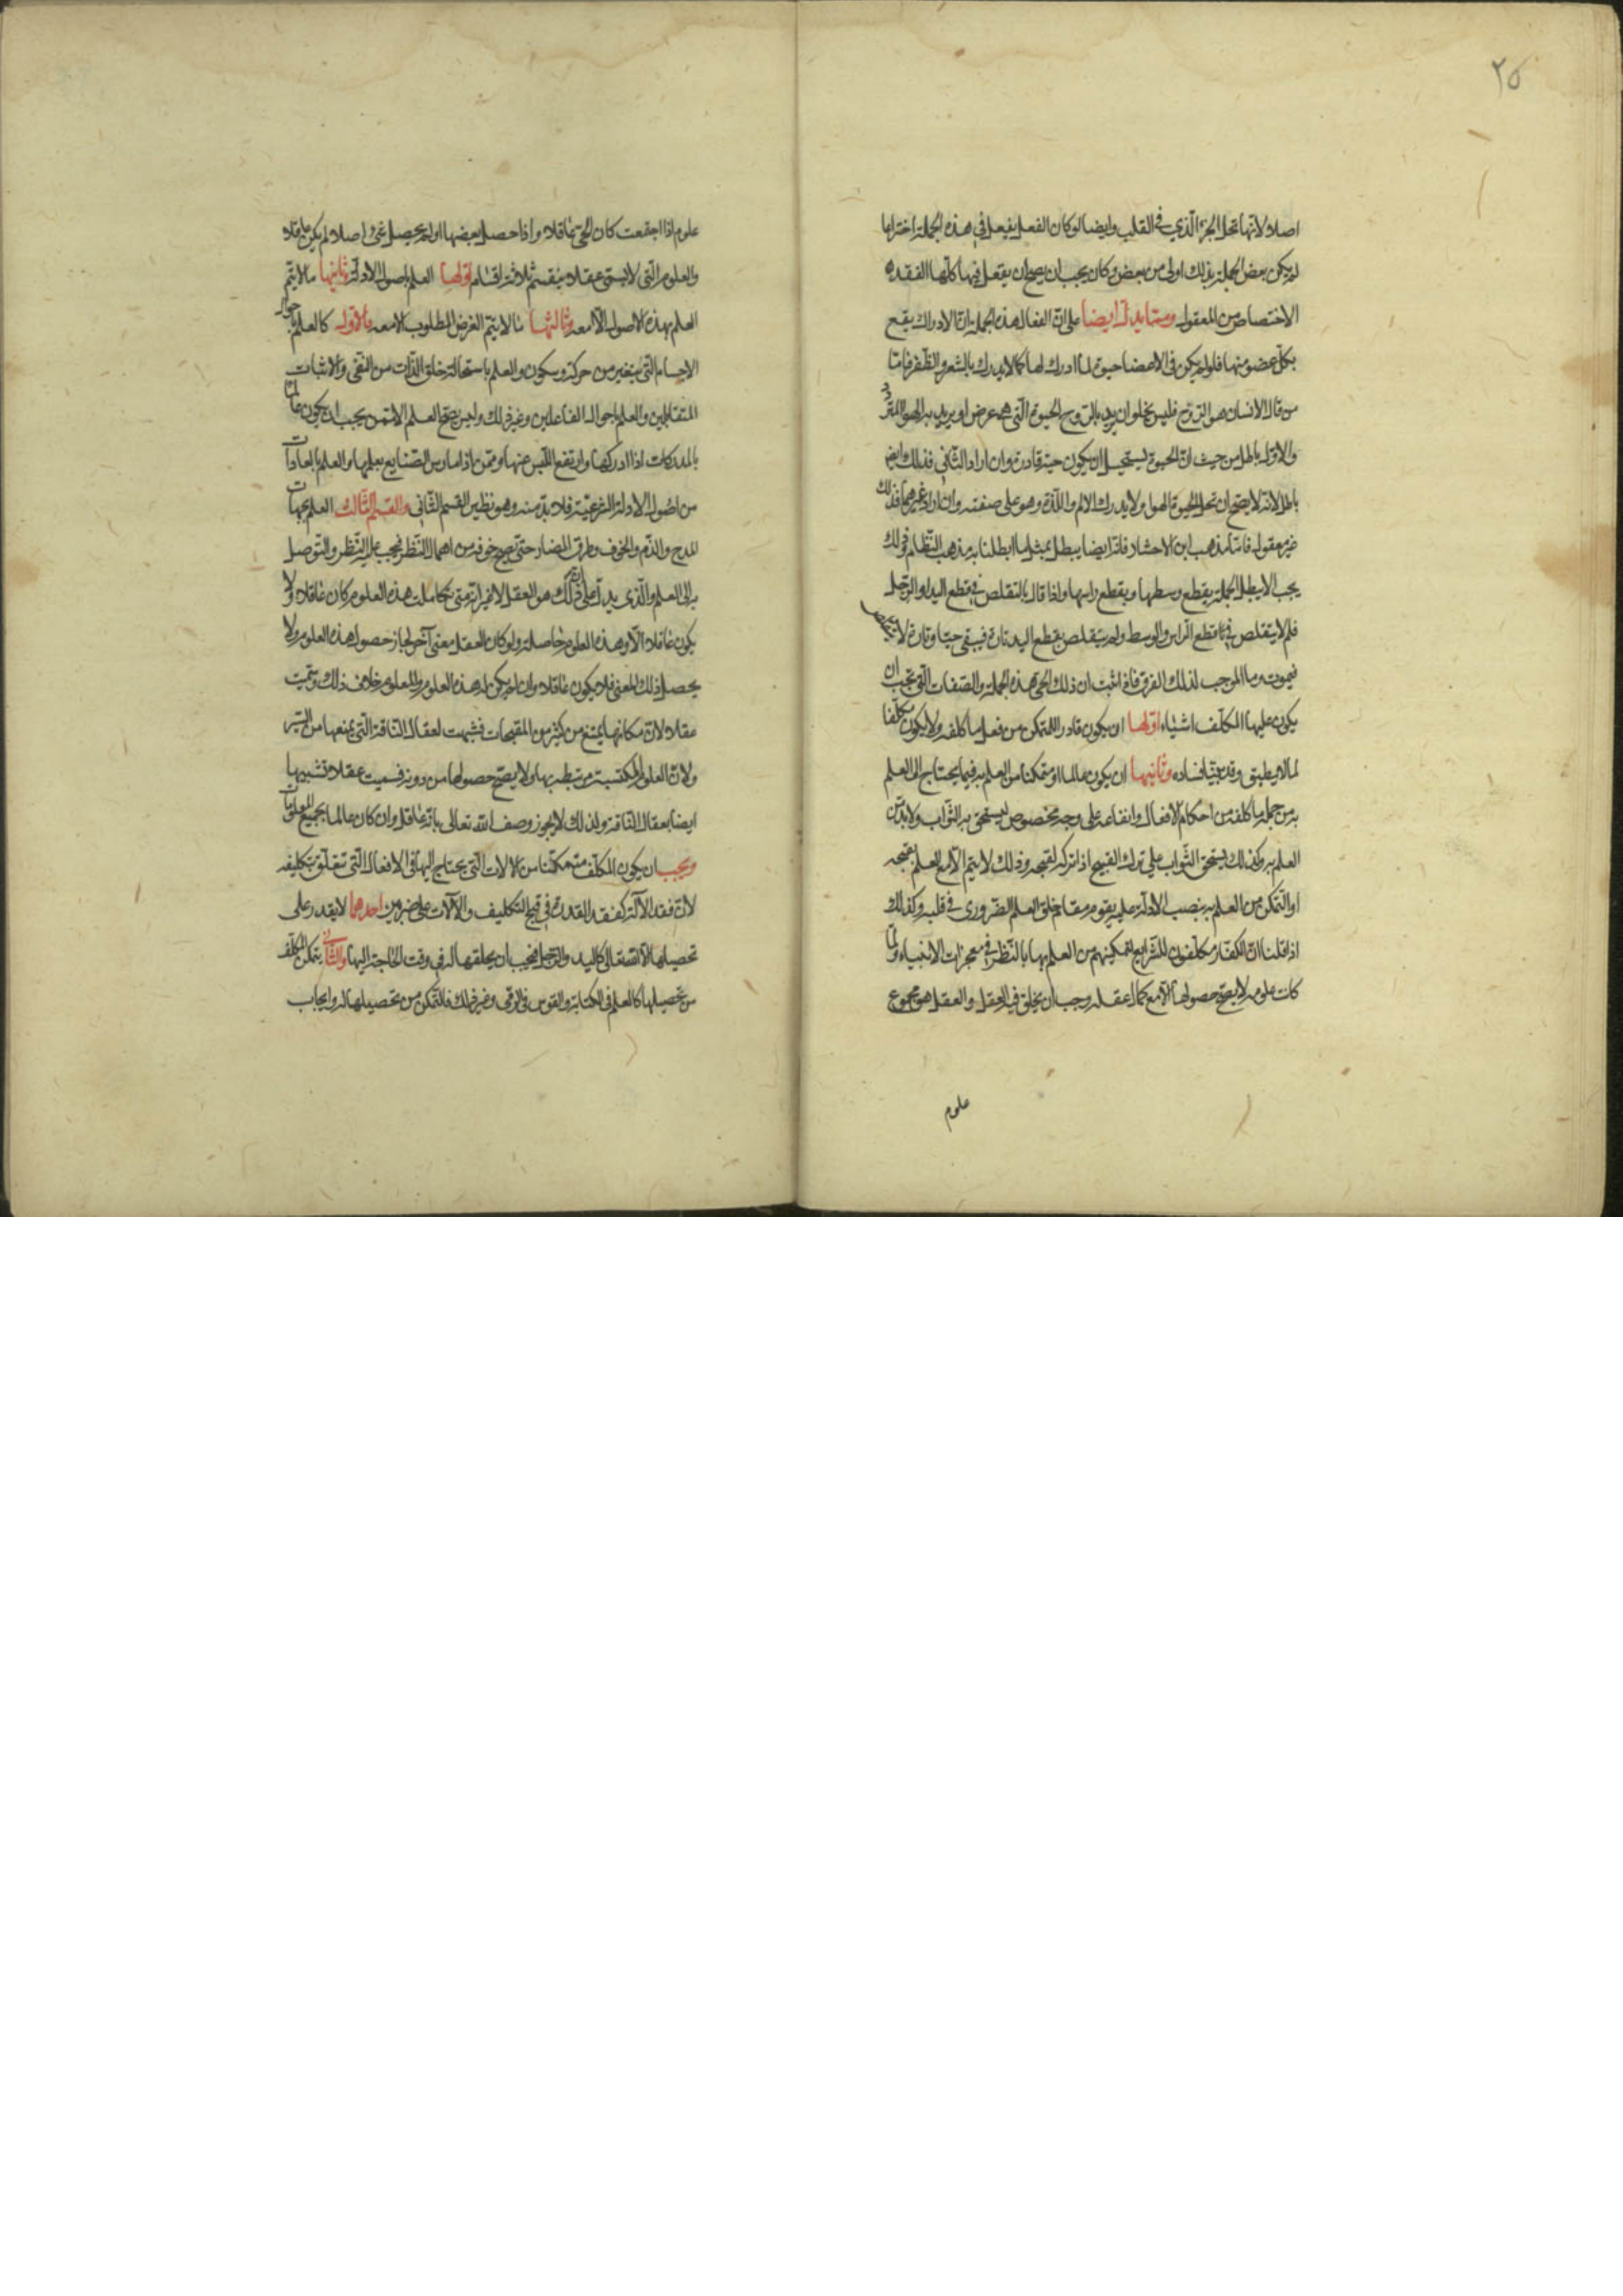 ٢٥
اصلا لانها تحل الجزء الذي في القلب وايضا لو كان الفعل يفعل في هذه الجملة اختراعا
لم يكن بعض الجملة بذلك اولى من بعض وكان يجب ان يصح ان يفعل فيها كلها الفقده
الاختصاص من المعقول ومما يدل ايضا على ان الفعال هذه الجملة ان الادراك يقع
بكل عضو منها فلو لم يكن في الاعضا حيوة لما ادرك لها كما لا يدرك بالشعر والظفر فاما
من قال الانسان هو الروح فليس يخلو ان يريد بالروح الحيوة التي هي عرض او يريد به الهوا المتردد
والاول باطل من حيث ان الحيوة يستحيل ان يكون حية قادرة وان اراد الثاني فذلك ايض
باطل لانه لا يصح ان تحل الحيوة الهوا ولا يدرك الالم واللذة وهو على صفته وان اراد غيرهما فذلك
غير معقول فاما مذهب ابن الاحشاد فانه ايضا يبطل بمثل ما ابطلنا به مذهب النظام وفي ذلك
يجب الا يبطل الجملة بقطع وسطها وبقطع راسها واذا قال بالتقلص في قطع اليد او الرجل
فلم لا يتقلص في قطع الراس والوسط ولم يتقلص بقطع اليد تارة فيبقى حيا وتارة لا يتقلص
فيموت وما الموجب لذلك الفرق فاذا ثبت ان ذلك الحي هذه الجملة والصفات التي يجب ان
يكون عليها المكلف اشياء اولها ان يكون قادرا ليتمكن من فعل ما كلفه ولا يكون مكلفا
لما لا يطيق وقد بينا فساده وثانيها ان يكون عالما او متمكنا من العلم به فيما يحتاج الى العلم
به من جملة ما كلفه من احكام الافعال وايقاعه على وجه مخصوص ليستحق به الثواب ولا بد من
العلم به وكذلك يستحق الثواب على ترك القبيح اذا تركه لقبحه وذلك لا يتم الا مع العلم بقبحه
او التمكن من العلم به بنصب الادلة عليه يقوم مقام خلق العلم الضروري في قلبه وكذلك
اذا قلنا ان الكفار مكلفون للشرايع لتمكينهم من العلم بها بالنظر في معجزات الانبياء ولما
كانت علومه لا يصح حصولها الا مع كمال عقله وجب ان يخلق فيه العقل والعقل هو مجموع
علوم
علوم اذا اجتمعت كان الحي عاقلا واذا حصل بعضها او لم يحصل شئ اصلا لم يكن عاقلا
والعلوم التي لا تسمى عقلا ينقسم ثلاثة اقسام اولها العلم باصول الادلة وثانيها ما لا يتم
العلم بهذه الاصول الا معه وثالثها ما لا يتم الغرض المطلوب الا معه فالاول كالعلم باحوال
الاجسام التي يتغير من حركة وسكون والعلم باستحالة خلق الذات من النفي والاثبات
المتقابلين والعلم باحوال الفاعلين وغير ذلك وليس يصح العلم الا ممن يجب ان يكون عالما
بالمدركات اذا ادركها وارتفع اللبس عنها وممن اذا مارس الصنايع يعلمها والعلم بالعادات
من اصول الادلة الشرعية فلا بد منه وهو نظير القسم الثاني والقسم الثالث العلم بجهات
المدح والذم والخوف وطرق المضار حتى يصح خوفه من اهمال النظر فيجب عليه النظر والتوصل
به الى العلم والذي يدل على ان ذلك هو العقل لا غير انه متى تكاملت هذه العلوم كان عاقلا ولا
يكون عاقلا الا وهذه العلوم حاصلة ولو كان العقل معنى آخر لجاز حصول هذه العلوم ولا
يحصل ذلك المعنى فلا يكون عاقلا وان لم يكن له هذه العلوم والمعلوم خلاف ذلك وسميت
عقلا لان مكانها يمتنع من كثير من المقبحات فشبهت لعقال الناقة التي يمنعها من السير
ولان العلوم المكتسبة مرتبطة بها ولا يصح حصولها من دونه فسميت عقلا تشبيها
ايضا بعقال الناقة ولذلك لا يجوز وصف الله تعالى بانه عاقل وان كان عالما بجميع المعلومات
ويجب ان يكون المكلف متمكنا من الالات التي يحتاج اليها في الافعال التي تتعلق بتكليفه
لان فقد الآلة كفقد القدرة في قبح التكليف والآلات على ضربين احدهما لا يقدر على
تحصيلها الا الله تعالى كاليد والرجل فيجب ان يخلقها له في وقت الحاجة اليها والثاني يتمكن المكلف
من تحصيلها كالعلم في الكتابة والقوس في الرمي وغير ذلك فالتمكن من تحصيلها له وايجاب